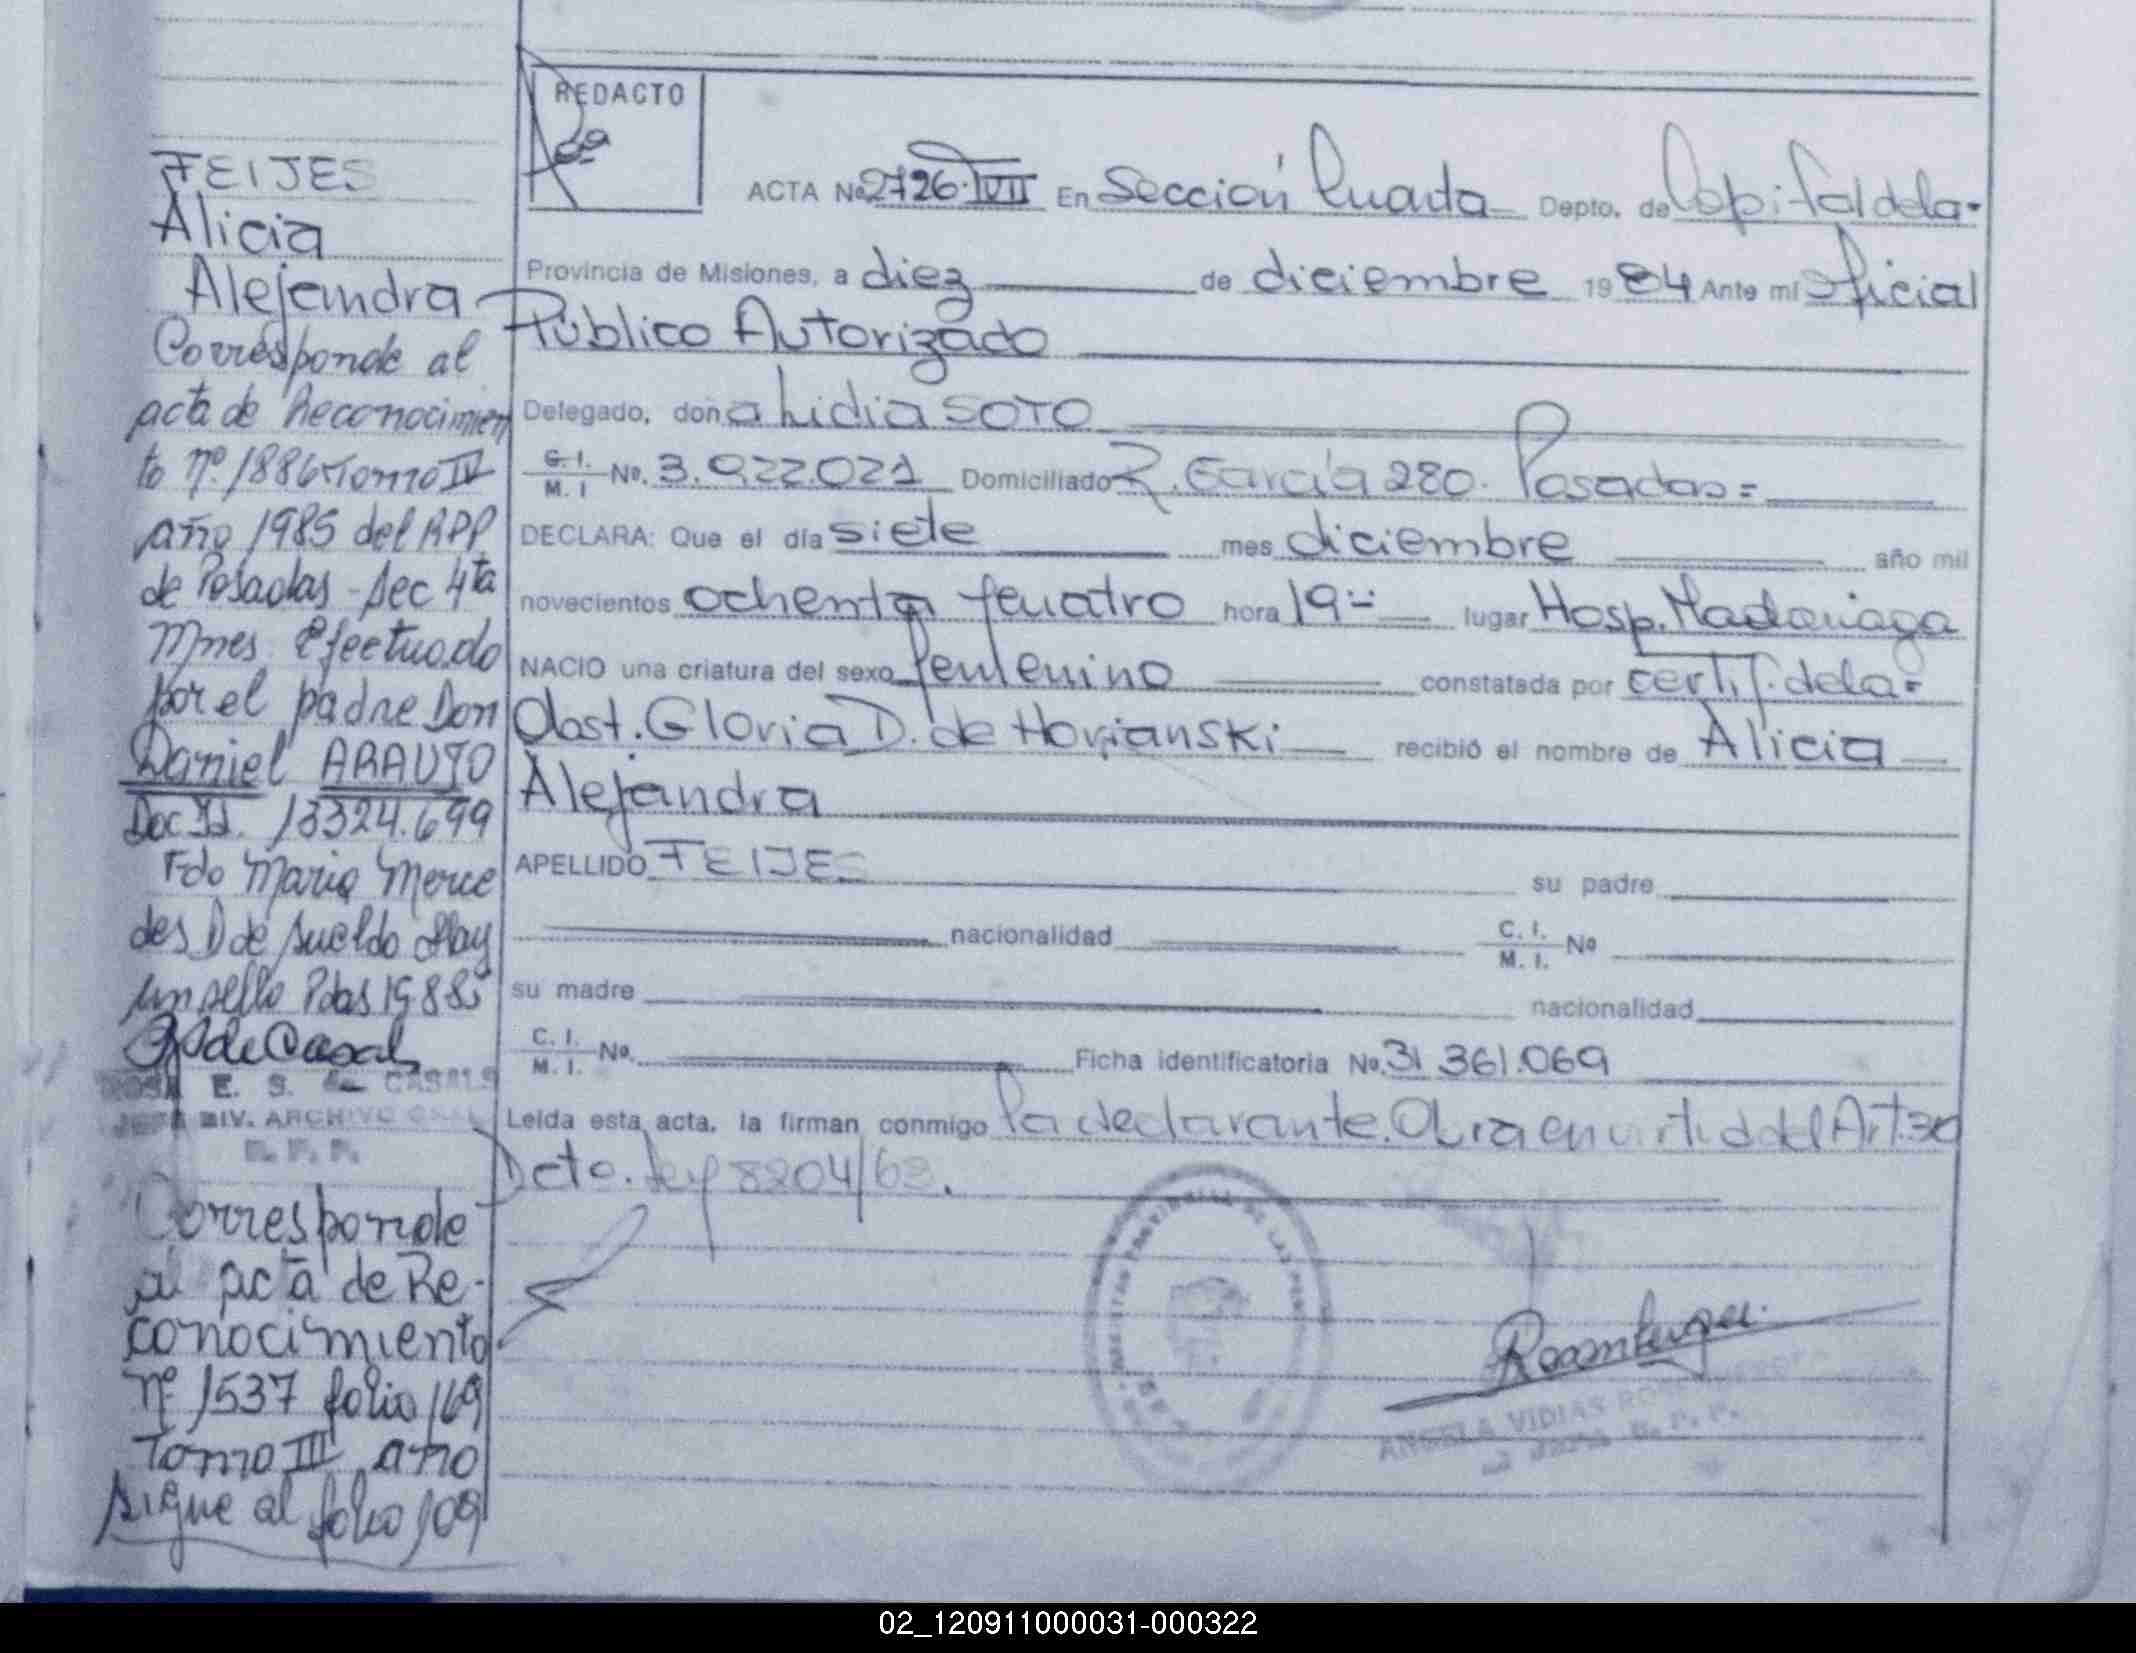 FEIJES
Alicia
Alejandra
Corresponde al
acta de Reconocimien
to nº. 1886 Tomo IV
año 1985 del RPP
de Posadas - Sec 4ta
Mnes. Efectuado
por el padre Don
Daniel ARAUJO
Doc Id. 13324.699
Fdo Maria Merce
des D de Sueldo Hay
un sello Pdas 1985
ROSA E. S. de CASALS
JEFA DIV. ARCHIVO GRAL
R. P. P.
Corresponde
al acta de Re-
conocimiento
nº 1537 folio 169
Tomo III año
sigue al folio 109
REDACTO
ACTA Nº 2726. TVII En Sección Cuarta Depto. de Capital de la-
Provincia de Misiones, a diez de diciembre 1984 Ante mí Oficial
Público Autorizado
Delegado, doña Lidia SOTO
C. I. M. I Nº. 3.922.021 Domiciliado R. García 280. Posadas=
DECLARA: Que el día siete mes diciembre año mil
novecientos ochenta y cuatro hora 19 lugar Hosp. Madariaga
NACIO una criatura del sexo femenino constatada por certif. de la=
Obst. Gloria D. de Horianski recibió el nombre de Alicia
Alejandra
APELLIDO FEIJES su padre
nacionalidad C. I. M. I. Nº
su madre nacionalidad
C. I. M. I. Nº. Ficha identificatoria Nº. 31 361.069
Leída esta acta, la firman conmigo la declarante. Obra en virtud del Art. 30
Dcto. Ley 8204/63.
ANGELA VIDIAS
R. P. P.
02_120911000031-000322